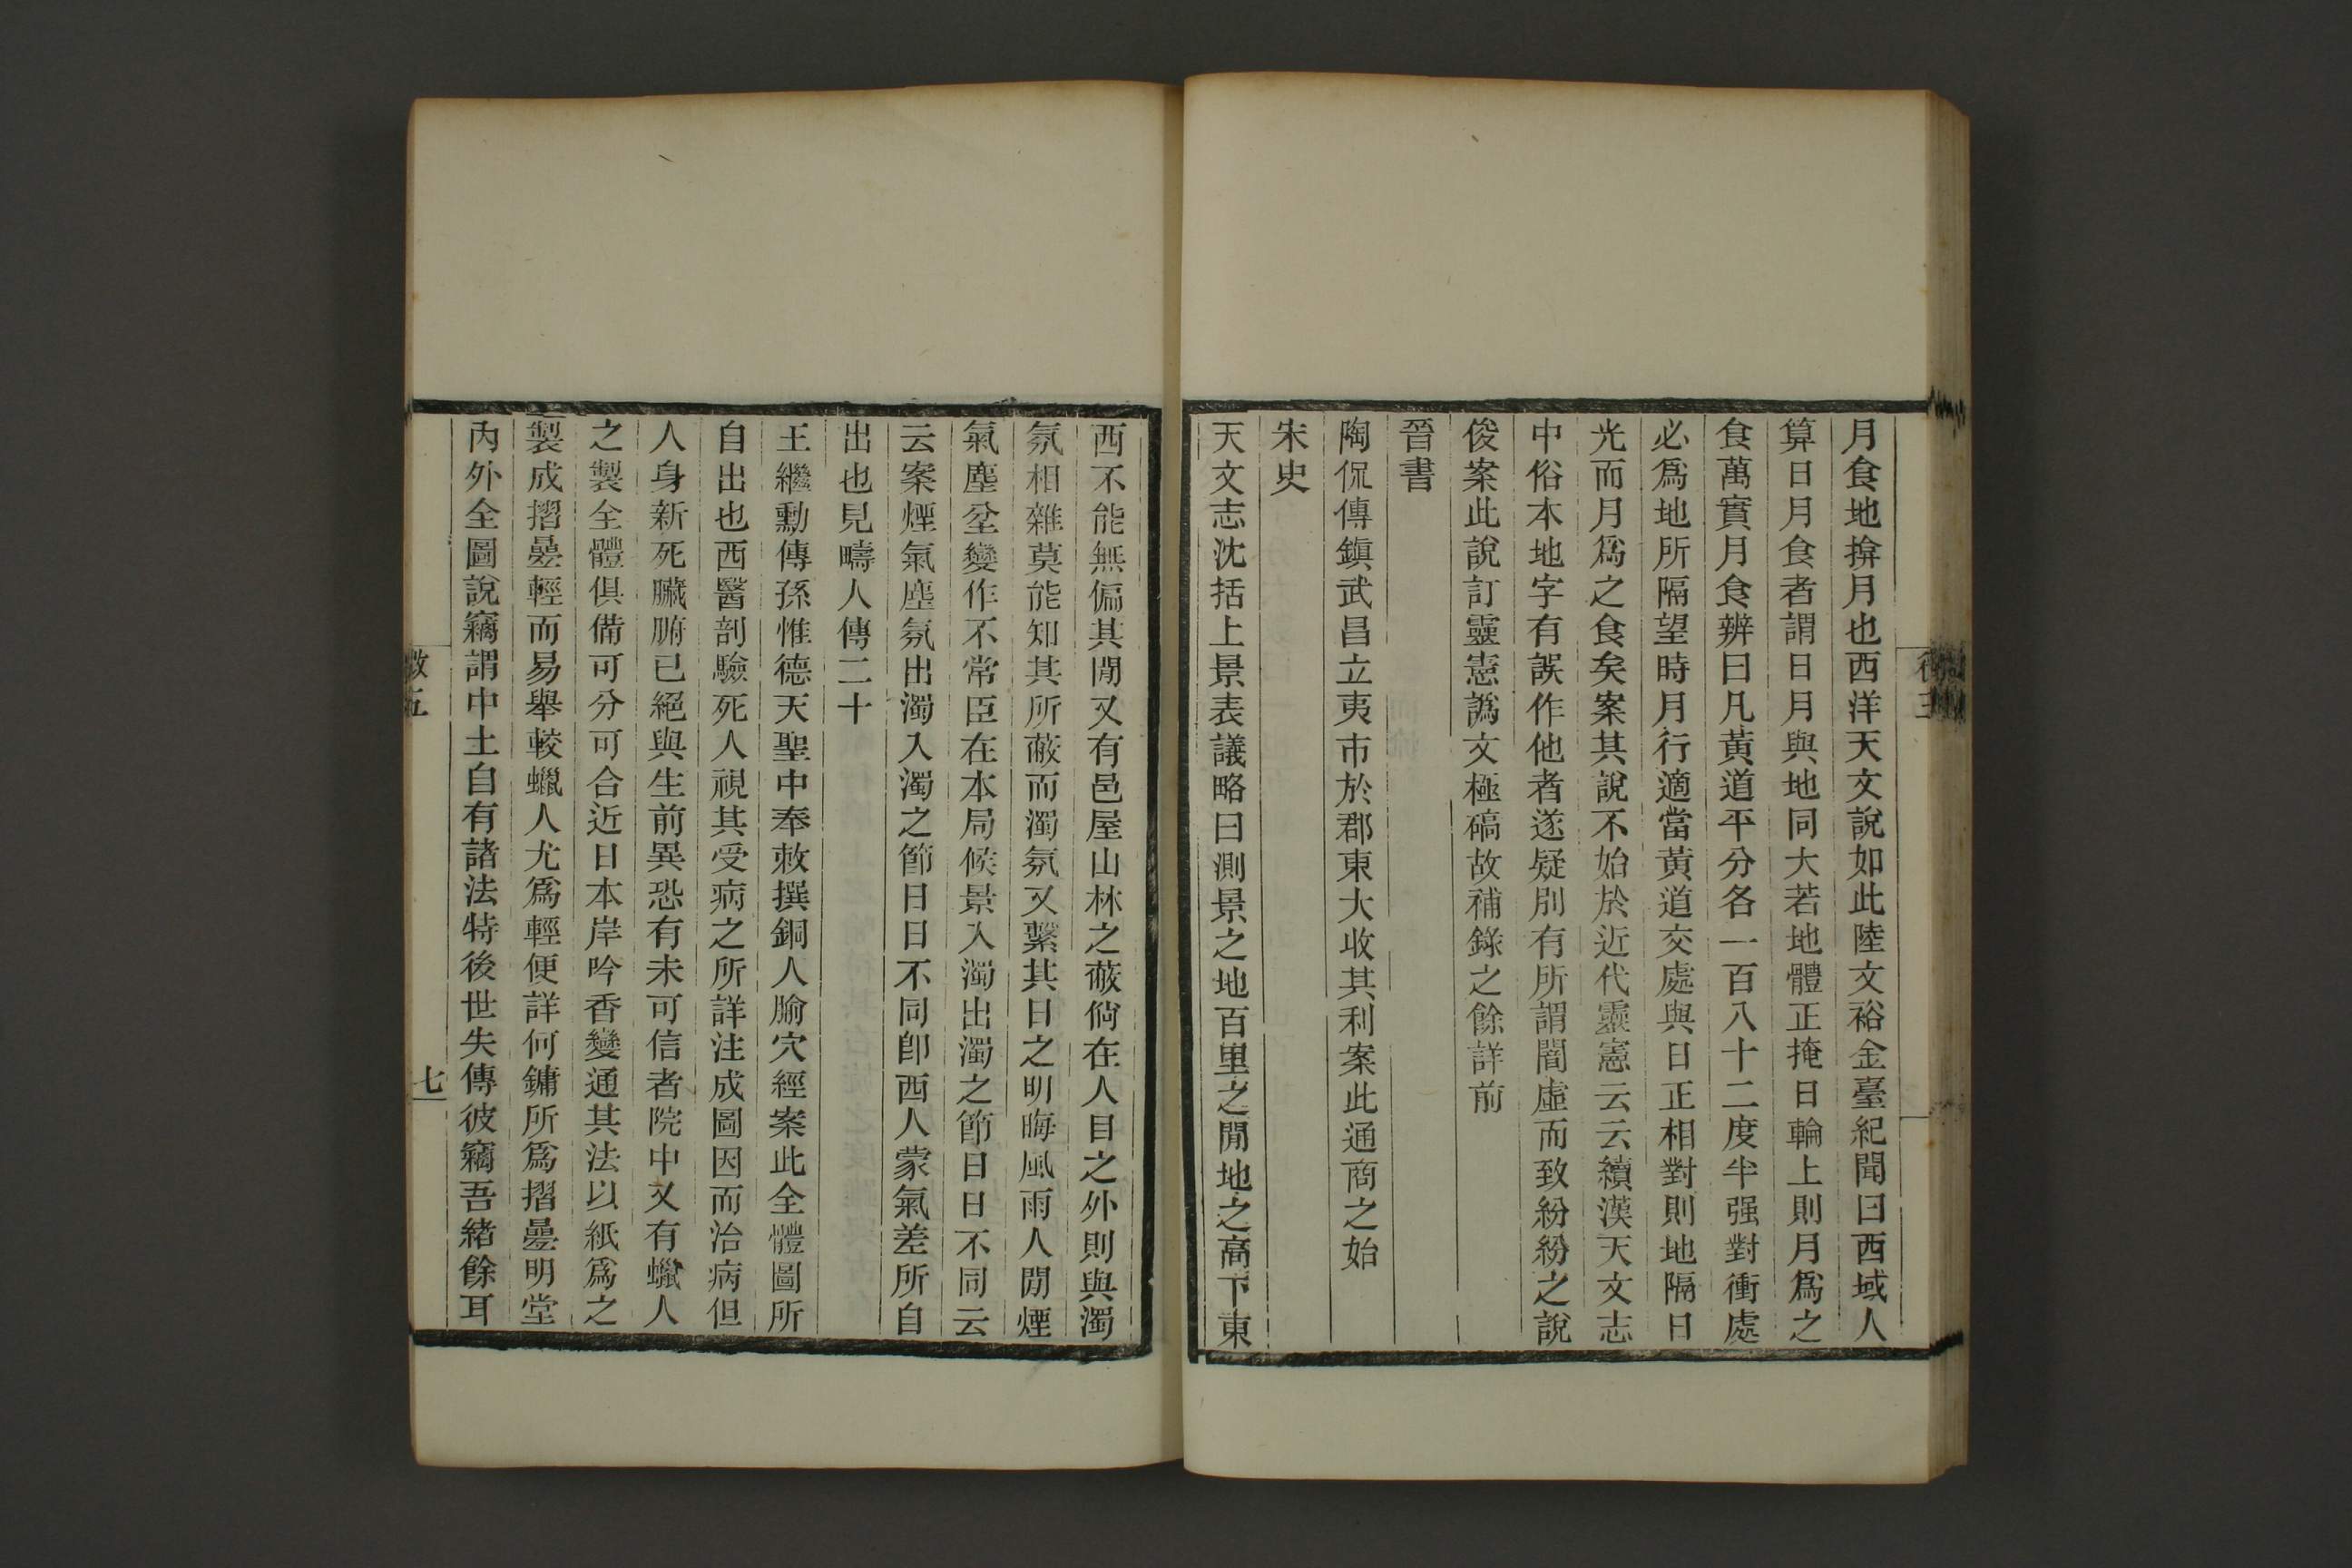 月食地揜月也西洋天文說如此陸文裕金臺紀聞曰西域人
算日月食者謂日月與地同大若地體正掩日輪上則月爲之
食萬實月食辨曰凡黃道平分各一百八十二度半强對衝處
必爲地所隔望時月行適當黃道交處與日正相對則地隔日
光而月爲之食矣案其說不始於近代靈憲云云續漢天文志
中俗本地字有誤作他者遂疑別有所謂闇虛而致紛紛之說
俊案此說訂靈憲譌文極碻故補錄之餘詳前
晉書
陶侃傳鎭武昌立夷市於郡東大收其利案此通商之始
宋史
天文志沈括上景表議略曰測景之地百里之閒地之高下東
西不能無偏其閒又有邑屋山林之蔽倘在人目之外則與濁
氛相雜莫能知其所蔽而濁氛又繫其日之明晦風雨人閒煙
氣塵坌變作不常臣在本局候景入濁出濁之節日日不同云
云案煙氣塵氛出濁入濁之節日日不同卽西人蒙氣差所自
出也見疇人傳二十
王繼勳傳孫惟德天聖中奉敕撰銅人腧穴經案此全體圖所
自出也西醫剖驗死人視其受病之所詳注成圖因而治病但
人身新死臟腑已絕與生前異恐有未可信者院中又有蠟人
之製全體俱備可分可合近日本岸吟香變通其法以紙爲之
製成摺疊輕而易舉較蠟人尤爲輕便詳何鏞所爲摺疊明堂
內外全圖說竊謂中土自有諸法特後世失傳彼竊吾緒餘耳
七